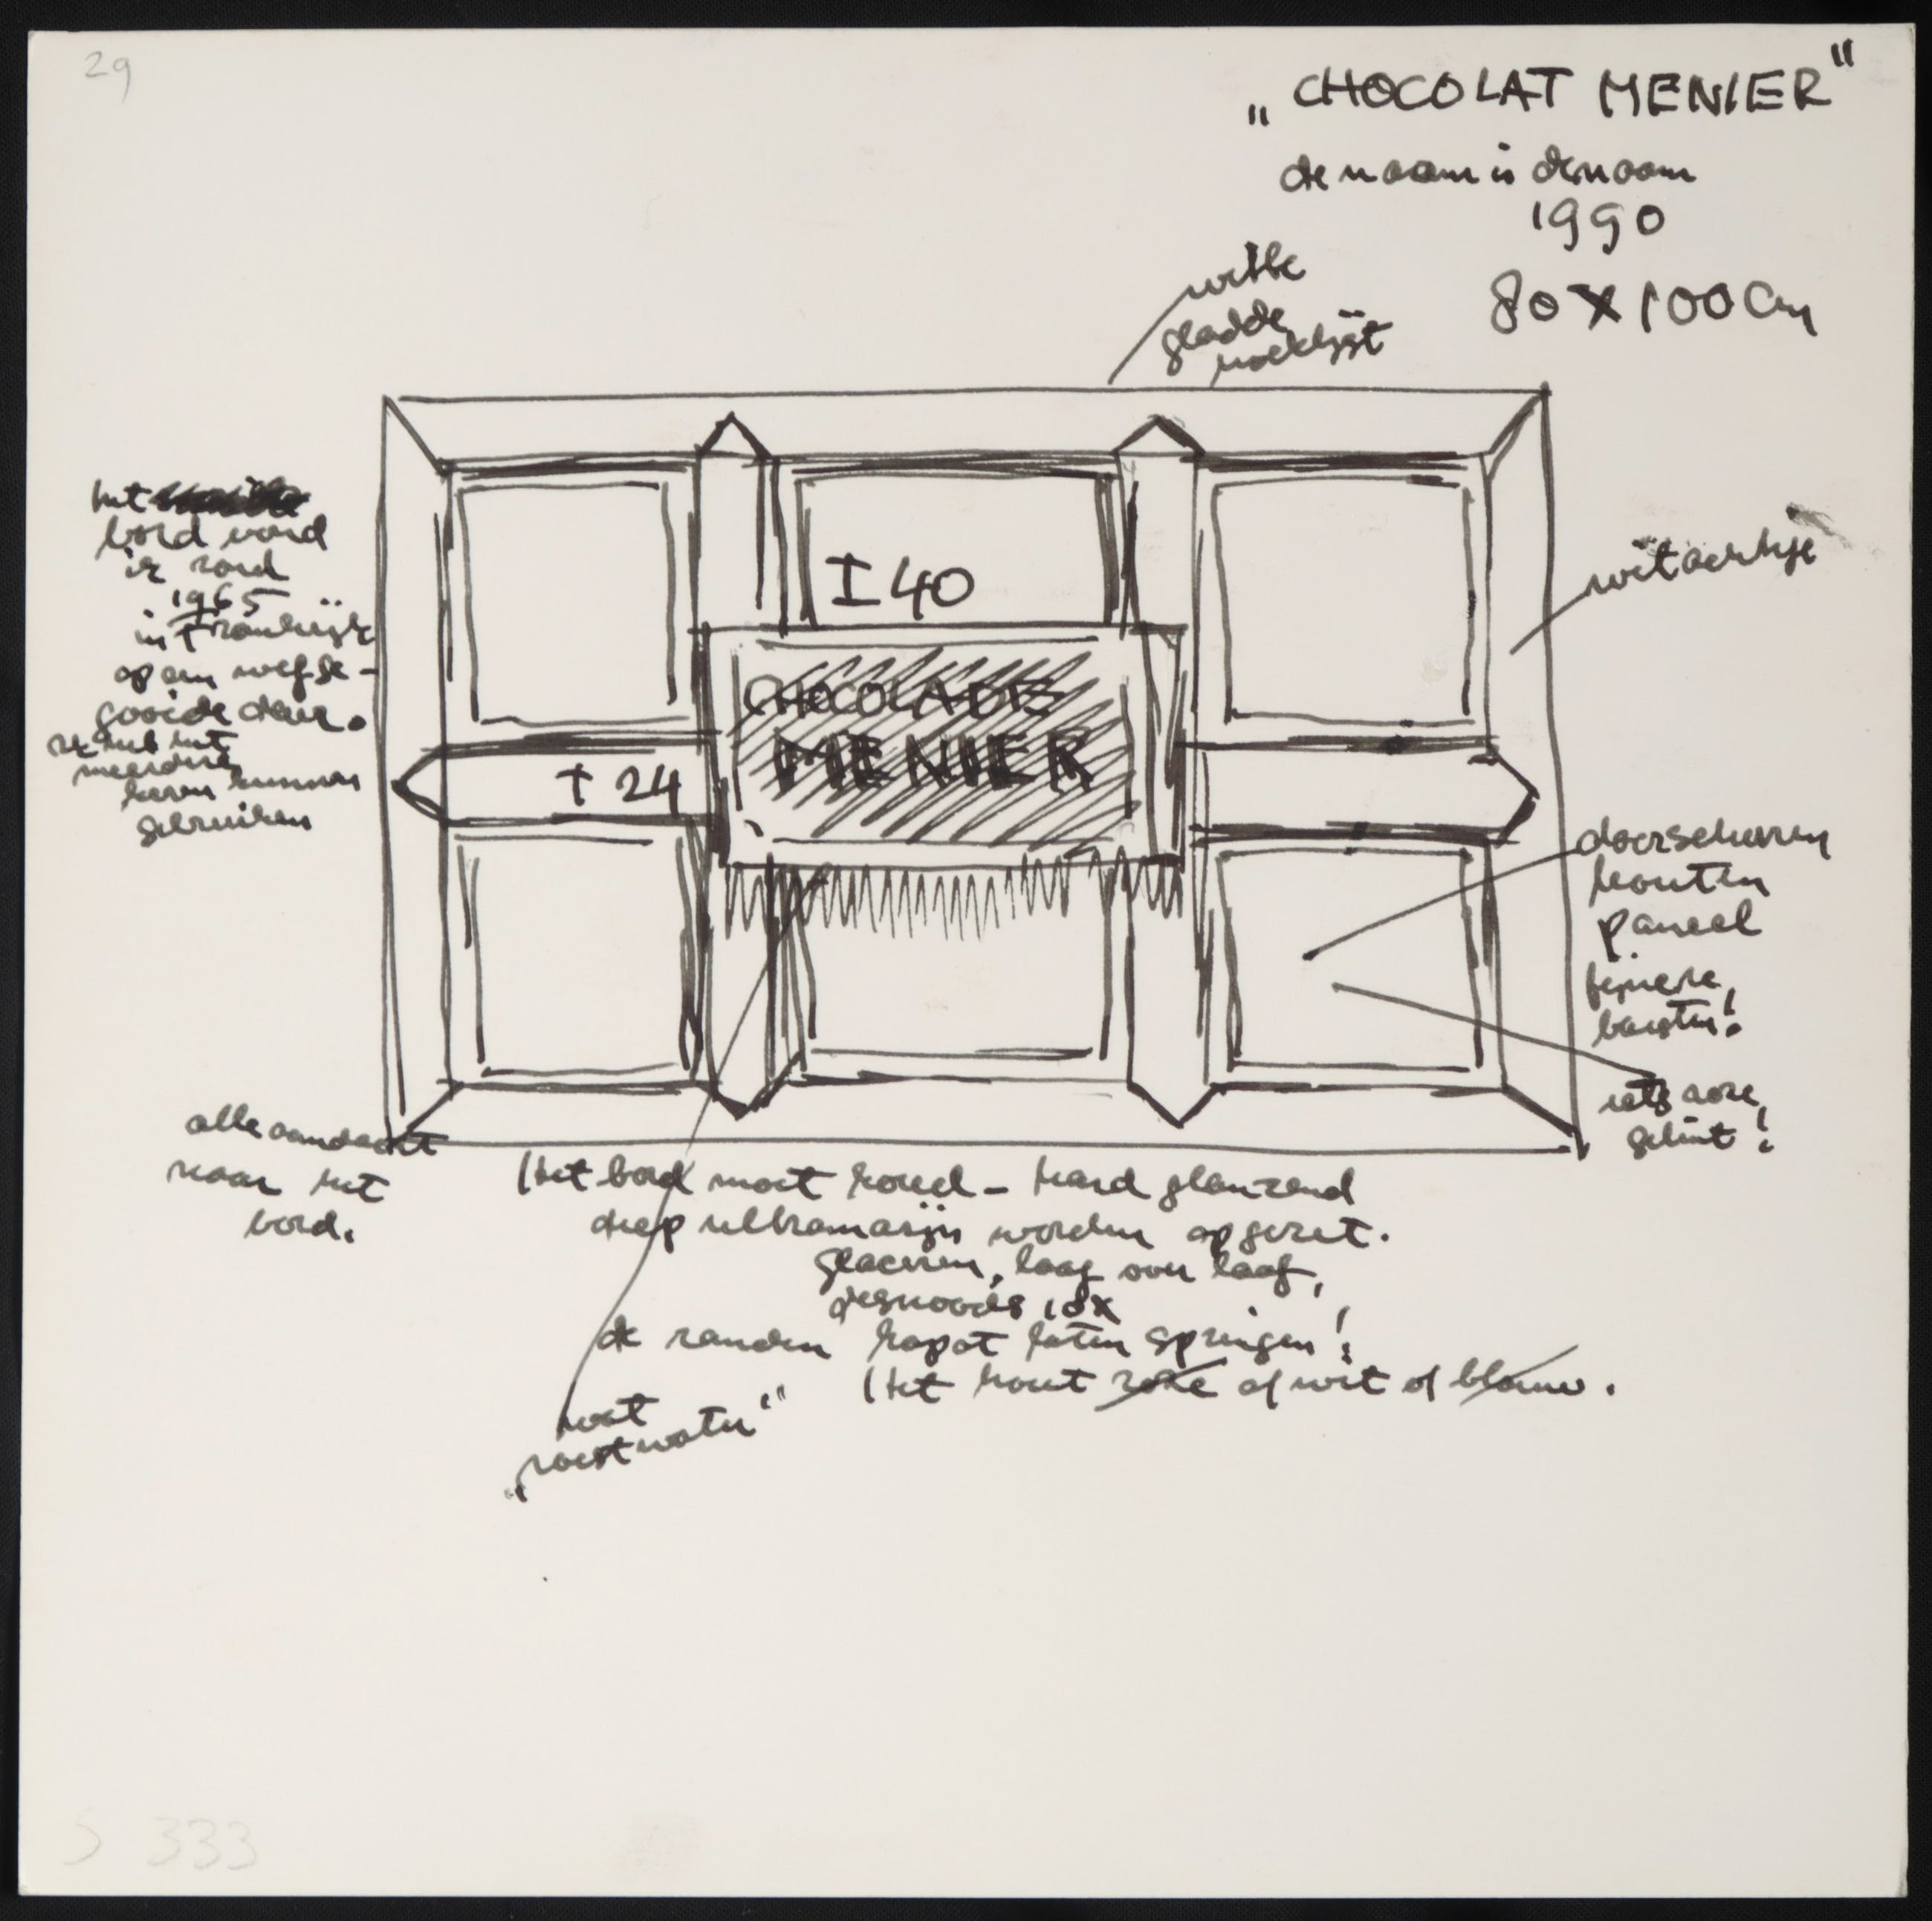 29
„CHOCOLAT MENIER"
de naam is de naam
1990
80 X 100 Cm
witte
gladde
haaklijst
het
bord vond
ik rond
1965
in Frankrijk
op een wegge-
gooide deur.
Ik heb het
meerdere
keren kunnen
gebruiken
witachtije
I 40
CHOCOLADE
MENIER
T 24
doorschenen
houten
paneel
fijnere
barsten!
iets roze
getint!
alle aandacht
naar het
bord.
Het bord moet koud - hard glanzend
diep ultramarijn worden opgezet.
glaceren, laag over laag,
desnoods 10x
de randen kapot laten springen!
Het hout roze of wit of blauw.
wat
„roestwater"
S 333